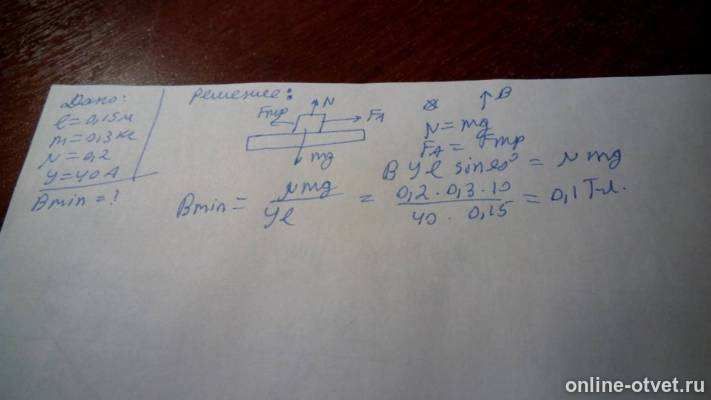 Дано:
l = 0,15 м
m = 0,3 кг
μ = 0,2
I = 40 А
Bmin = ?
Решение:
Fтр N FA
mg
⊗ ↑ B
N = mg
FA = Fтр
B I l sin 90° = μ mg
Bmin = μmg / Il = 0,2 · 0,3 · 10 / 40 · 0,15 = 0,1 Тл.
online-otvet.ru